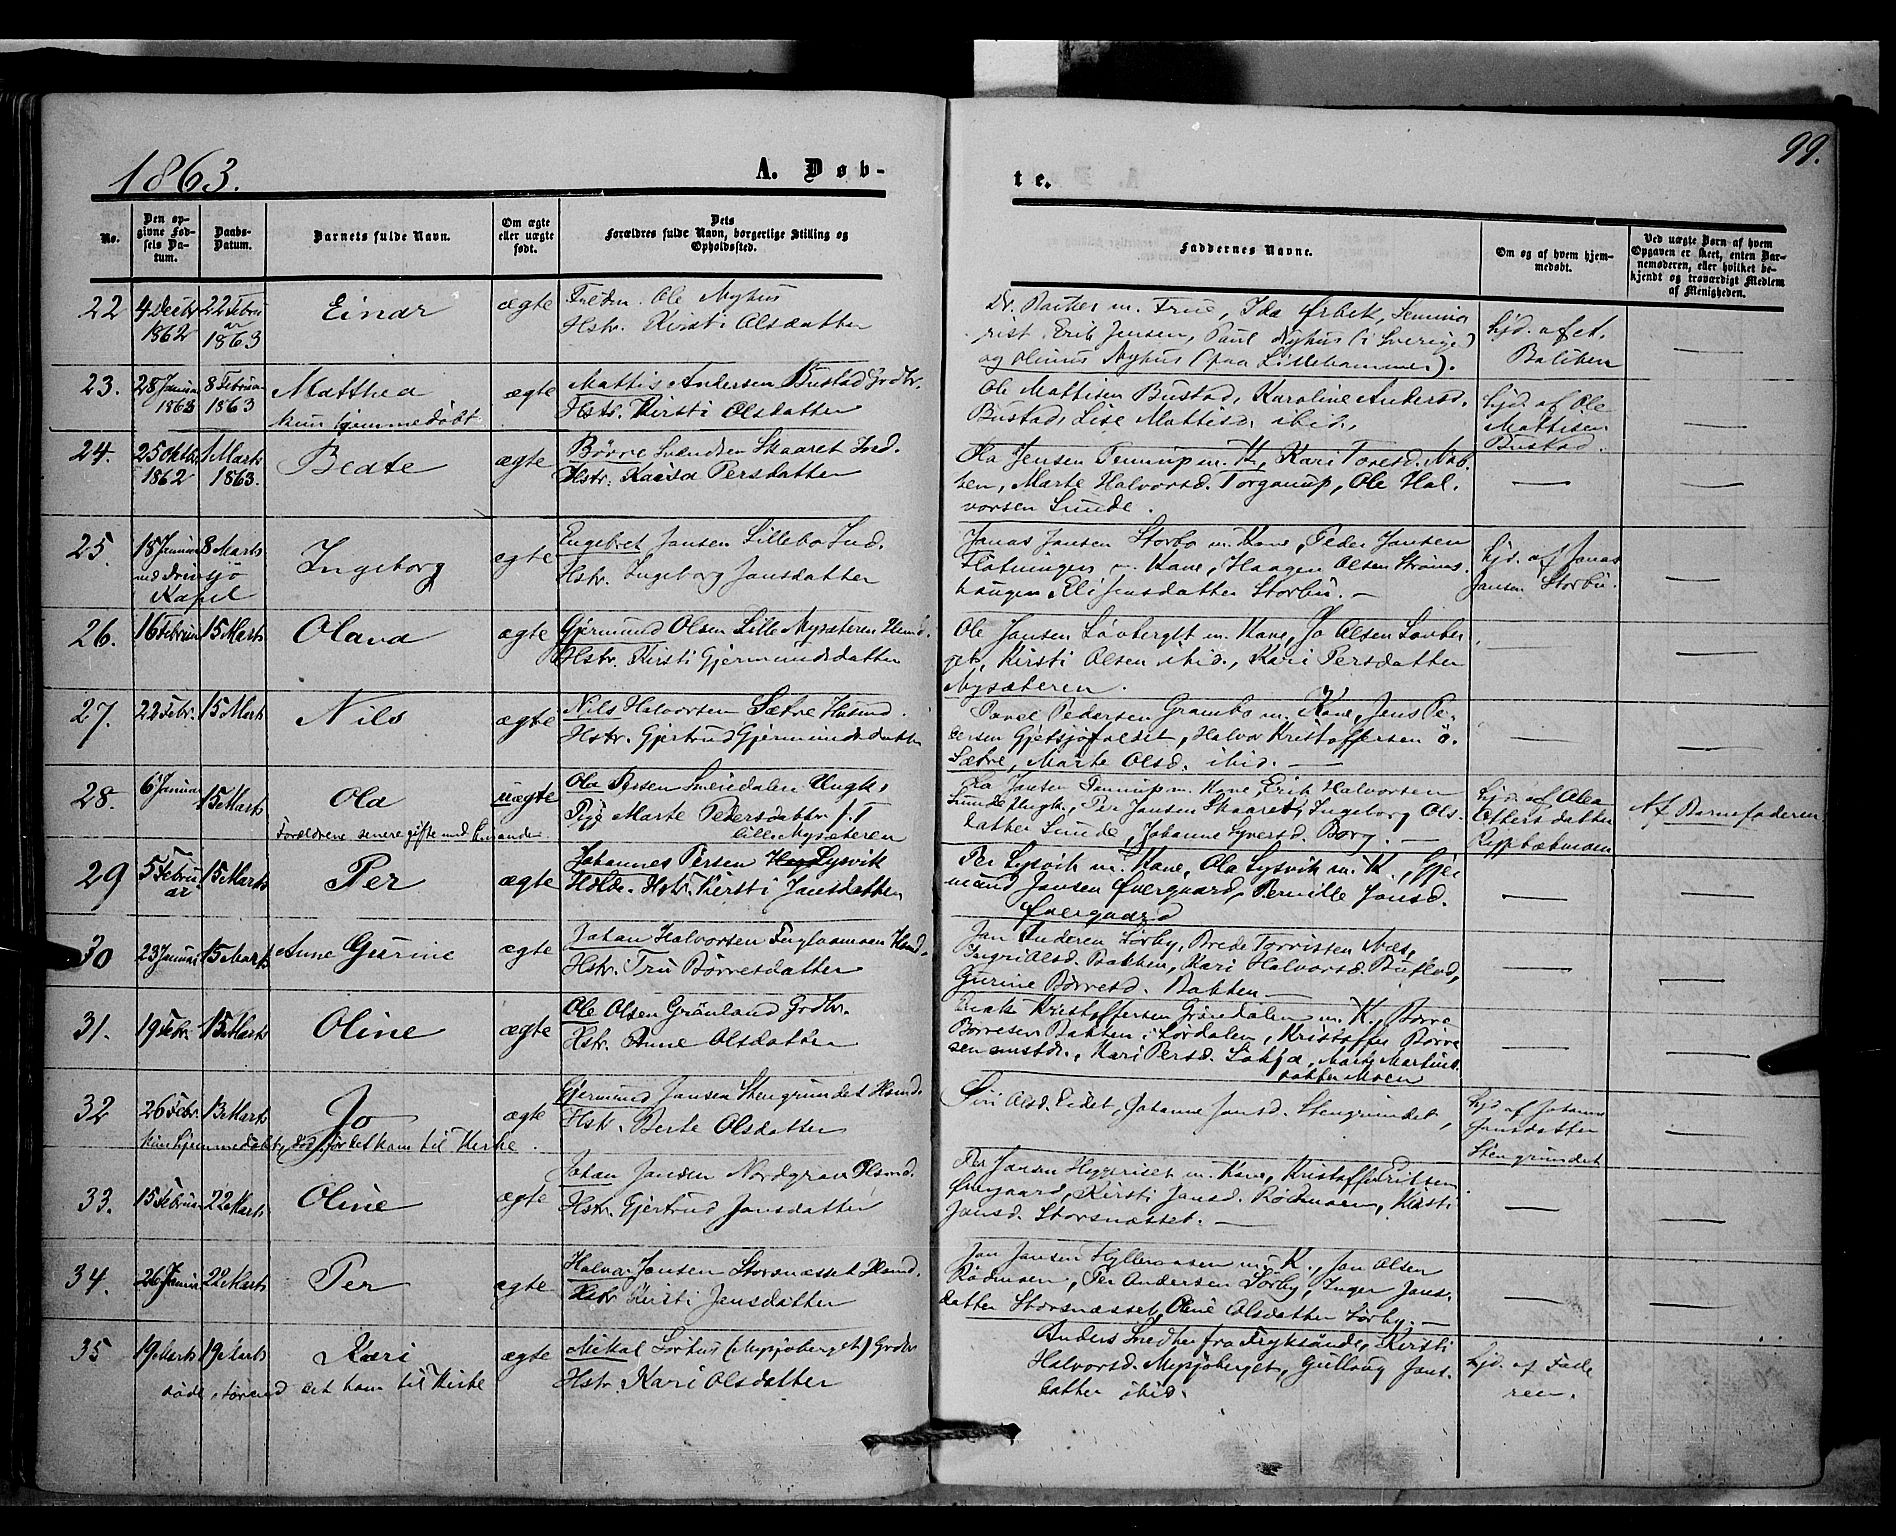 1863.
A. Døb-
te.
99.
No.
Den op-
givne Fød-
sels Da-
tum.
Daabs-
Datum.
Barnets fulde Navn.
Om ægte
eller uægte
født.
Dets
Forældres fulde Navn, borgerlige Stilling og
Opholdssted.
Faddernes Navne.
Om og af hvem hjem-
medøbt.
Ved uægte Børn af hvem
Opgaven er skeet, enten Bar-
nemoderen, eller hvilket be-
kjendt og troværdigt Medlem
af Menigheden.
22
4 Decbr
1862
22 Febru
ar
1863
Einar
ægte
Ole Nyhus
Hstr. Kirsti Olsdatter
Dr. m. Frue, Ida Ørbek, Semina
rist Erik Jensen, Paul Nyhus (i Sverige)
og Olinus Nyhus (paa Lillehammer).
hjd. af
23.
28 Januar
1863
8 Februar
1863
Matthea
kun hjemmedøbt
ægte
Mattis Andersen Bustad Grdbr.
Hstr. Kirsti Olsdatter
Ole Mattisen Bustad, Karoline Andersd.
Bustad, Lise Mattisd. ibid.
hjd. af Ole
Mattisen
Bustad.
24.
25 Oktbr
1862
1 Marts
1863.
Beate
ægte
Børre Svendsen Skaaret Ind.
Hstr. Kaisa Persdatter
Ola Jensen m. K., Kari Toresd. Nab-
ben, Marte Halvorsd. , Ole Hal-
vorsen Lunde.
25.
18 Januar
8 Marts
ved Drevsjö
Kapel
Ingeborg
ægte
Engebret Jansen Lillebo Ind.
Hstr. Ingeborg Jansdatter
Jonas Jansen Storbo m. Kone, Peder Jansen
Flötningen m. Kone, Haagen Olsen Ströms-
haugen Eli Jensdatter Storbu. —
hjd. af Jonas
Jansen Storbu.
26.
16 Februar
15 Marts
Olava
ægte
Gjermund Olsen Lille Nysæteren Husmd.
Hstr. Kirsti Gjermundsdatter
Ole Jansen Løvberget m. Kone, Jo Olsen Løvber
get, Kirsti Olsen ibid., Kari Persdatter
Nysæteren.
27.
22 Febr.
15 Marts
Nils
ægte
Nils Halvorsen Sætre Husmd.
Hstr. Gjertrud Gjermundsdatter
Povel Pedersen Grambo m. Kone, Jens Pe-
dersen Gjetsjøvoldet, Halvor Kristoffersen ö.
Sætre, Marte Olsd. ibid. —
28.
6 Januar
15 Marts
Ola
Forældrene senere gifte med hinanden
uægte
Ola Smeidalen Ungk.
Pige Marte Pedersdatter f. T
lille Nysæteren
Ola Jansen m. Kone, Erik Halvorsen
Lunde Ungk., Per Jansen Skaaret, Ingeborg Ols-
datter Lunde, Johanne Iversd. Borg. —
hjd. af Olea
Af Barnefaderen
29
5 Febru
ar
15 Marts
Per
ægte
Johannes Persen Lysvik
Hstr. Kirsti Jansdatter
Per Lysvik m. Kone, Ola Lysvik m. K., Gjer
mund Jansen Øvergaard, Pernille Jonsd.
Øvergaard
30
23 Januar
15 Marts
Anne Gurine
ægte
Johan Halvorsen Fuglaamoen Husmd.
Hstr. Tru Børresdatter
Jan Anderen Lörby, Brede Torvisten Næs,
Ingri Olsd. Bakken, Kari Halvorsd. Buflod,
Gurine Børresd. Bakken —
31.
19 Febr.
15 Marts
Oline
ægte
Ole Olsen Grönland Grdbr.
Hstr. Anne Olsdatter
Kristoffersen Gröndalen m. K., Børre
Børresen Bakken i Lørdalen, Kristoffer Børre
sen , Kari Persd. , Marte Martins
datter Moen
32
26 Febr.
13 Marts
Jo
kun hjemmedøbt, død før det kom til Kirke.
ægte
Gjermund Jansen Stengrundet Husmd.
Hstr. Berte Olsdatter
Siri Olsd. Eidet, Johanne Jansd. Stengrundet,
hjd. af Johanne
Jansdatter
Stengrundet
33.
15 Februar
22 Marts
Oline
ægte
Johan Jansen Nordgran Husmd.
Hstr. Gjertrud Jansdatter
Per Jansen m. Kone, Kristoffer Eriksen
Øvergaard, Kirsti Jansd. Rödmoen, Kirsti
Jansd. Storsnæsset. —
34.
26 Januar
22 Marts
Per
ægte
Halvor Jansen Storsnæsset Husmd.
Hstr. Kirsti Jansdatter
Jan Jansen Hylleraasen m. K., Jan Olsen
Rödmoen, Per Andersen Sörby, Inger Jans-
datter Storsnæsset, Oline Olsdatter Sörby. —
35
19 Marts
19 Marts
Kari
døde førend det kom til Kirke
ægte
Mikal Sørhus (Mysjøberget) Grdbr
Hstr. Kari Olsdatter
Anders fra Fryksände, Kirsti
Halvorsd. Mysjøberget, Gullaug Jans-
datter ibid.
hjd. af Fade
ren.